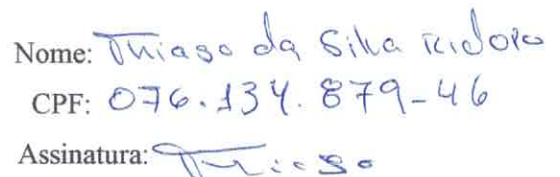 Nome: Thiago da Silva Isidoro
CPF: 076.134.879-46
Assinatura: Thiago